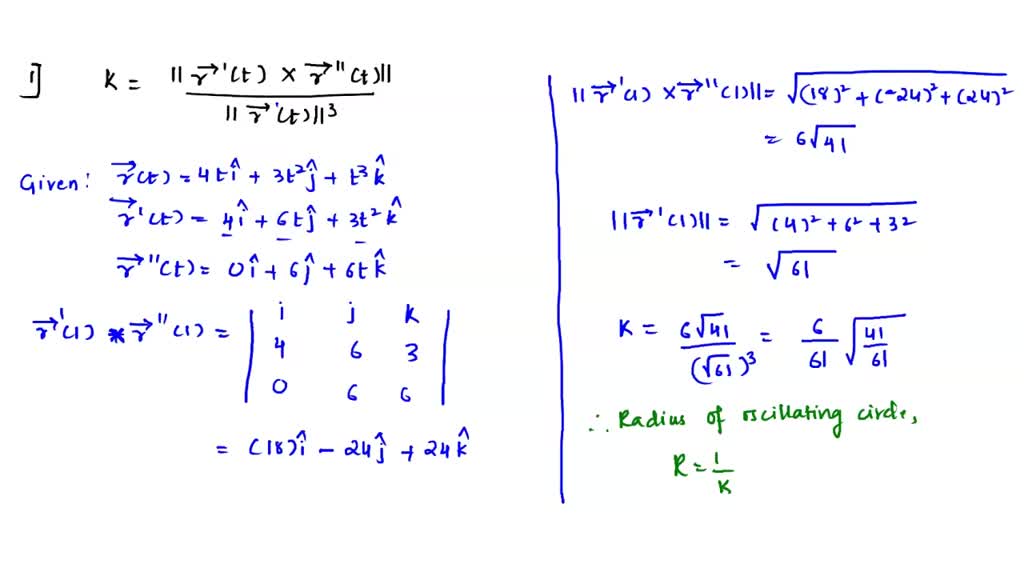 1] K = ||r⃗'(t) × r⃗''(t)|| / ||r⃗'(t)||³
Given: r⃗(t) = 4tî + 3t²ĵ + t³k̂
r⃗'(t) = 4î + 6tĵ + 3t²k̂
r⃗''(t) = 0î + 6ĵ + 6tk̂
r⃗'(1) × r⃗''(1) = | i j k |
| 4 6 3 |
| 0 6 6 |
= (18)î - 24ĵ + 24k̂
||r⃗'(1) × r⃗''(1)|| = √((18)² + (-24)² + (24)²)
= 6√41
||r⃗'(1)|| = √((4)² + 6² + 3²)
= √61
K = 6√41 / (√61)³ = 6/61 √(41/61)
∴ Radius of oscillating circle,
R = 1/K